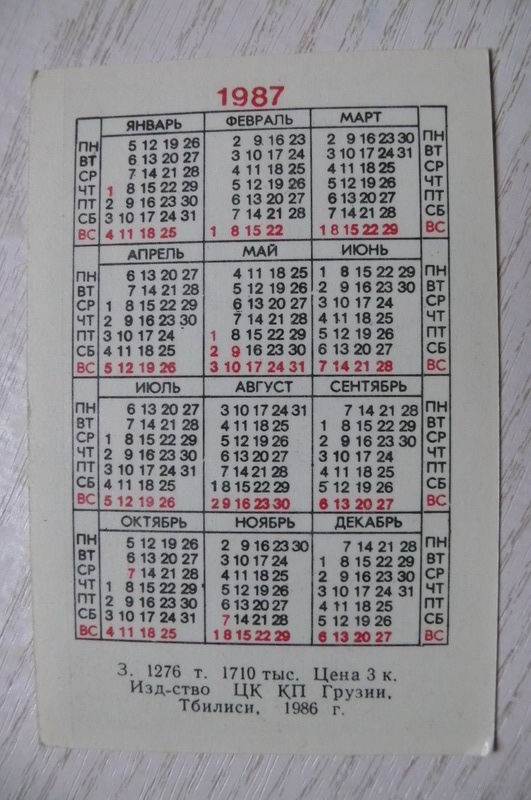 1987
ЯНВАРЬ ФЕВРАЛЬ МАРТ
ПН 5 12 19 26 2 9 16 23 2 9 16 23 30 ПН
ВТ 6 13 20 27 3 10 17 24 3 10 17 24 31 ВТ
СР 7 14 21 28 4 11 18 25 4 11 18 25 СР
ЧТ 1 8 15 22 29 5 12 19 26 5 12 19 26 ЧТ
ПТ 2 9 16 23 30 6 13 20 27 6 13 20 27 ПТ
СБ 3 10 17 24 31 7 14 21 28 7 14 21 28 СБ
ВС 4 11 18 25 1 8 15 22 1 8 15 22 29 ВС
АПРЕЛЬ МАЙ ИЮНЬ
ПН 6 13 20 27 4 11 18 25 1 8 15 22 29 ПН
ВТ 7 14 21 28 5 12 19 26 2 9 16 23 30 ВТ
СР 1 8 15 22 29 6 13 20 27 3 10 17 24 СР
ЧТ 2 9 16 23 30 7 14 21 28 4 11 18 25 ЧТ
ПТ 3 10 17 24 1 8 15 22 29 5 12 19 26 ПТ
СБ 4 11 18 25 2 9 16 23 30 6 13 20 27 СБ
ВС 5 12 19 26 3 10 17 24 31 7 14 21 28 ВС
ИЮЛЬ АВГУСТ СЕНТЯБРЬ
ПН 6 13 20 27 3 10 17 24 31 7 14 21 28 ПН
ВТ 7 14 21 28 4 11 18 25 1 8 15 22 29 ВТ
СР 1 8 15 22 29 5 12 19 26 2 9 16 23 30 СР
ЧТ 2 9 16 23 30 6 13 20 27 3 10 17 24 ЧТ
ПТ 3 10 17 24 31 7 14 21 28 4 11 18 25 ПТ
СБ 4 11 18 25 1 8 15 22 29 5 12 19 26 СБ
ВС 5 12 19 26 2 9 16 23 30 6 13 20 27 ВС
ОКТЯБРЬ НОЯБРЬ ДЕКАБРЬ
ПН 5 12 19 26 2 9 16 23 30 7 14 21 28 ПН
ВТ 6 13 20 27 3 10 17 24 1 8 15 22 29 ВТ
СР 7 14 21 28 4 11 18 25 2 9 16 23 30 СР
ЧТ 1 8 15 22 29 5 12 19 26 3 10 17 24 31 ЧТ
ПТ 2 9 16 23 30 6 13 20 27 4 11 18 25 ПТ
СБ 3 10 17 24 31 7 14 21 28 5 12 19 26 СБ
ВС 4 11 18 25 1 8 15 22 29 6 13 20 27 ВС
З. 1276 т. 1710 тыс. Цена 3 к.
Изд-ство ЦК КП Грузии,
Тбилиси, 1986 г.